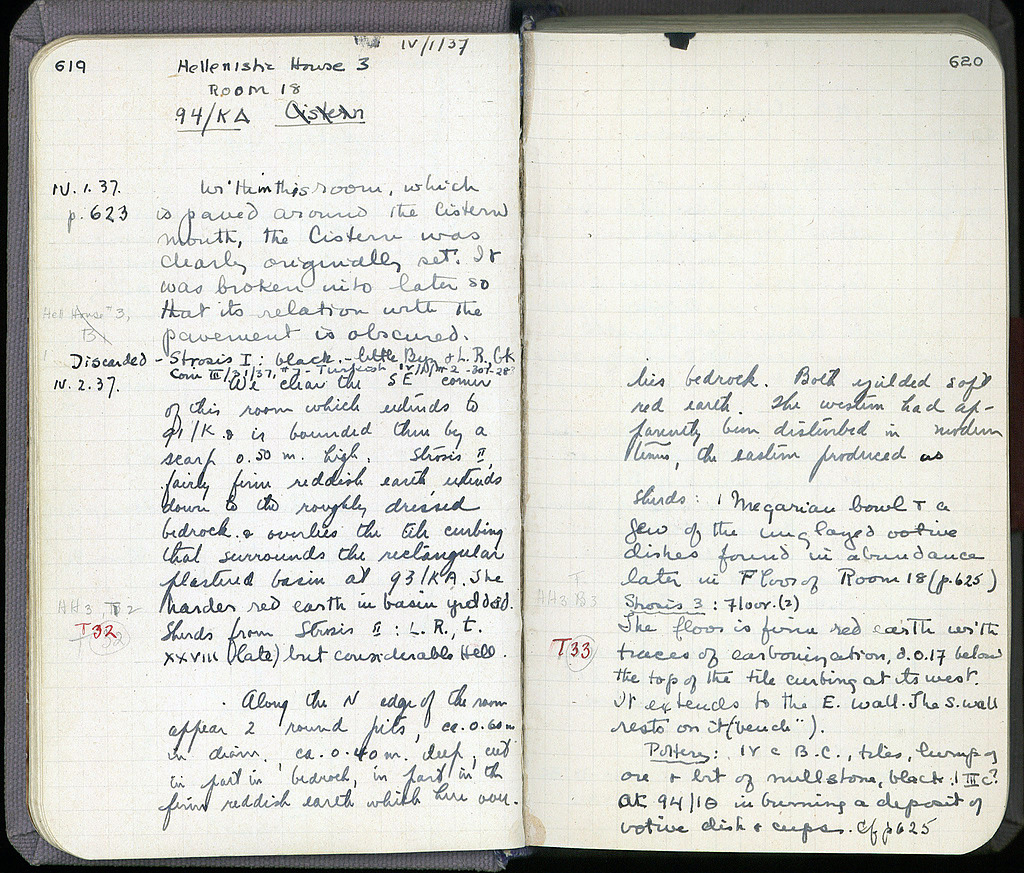 IV/1/37
619
Hellenistic House 3
ROOM 18
94/KΔ Cistern
IV. 1. 37.
p. 623
Within this room, which
is paved around the Cistern
mouth, the Cistern was
clearly originally set. It
was broken into later so
that its relation with the
pavement is obscured.
Hell House #3,
B1
Discarded - Strosis I: black. - little Byz & L. R. Gk
Coin III/31/37, #7 - Turkish
IV. 2. 37.
We clear the SE corner
of this room which extends to
91/K & is bounded then by a
scarp 0.50 m. high. Strosis II,
fairly firm reddish earth extends
down to the roughly dressed
bedrock & overlies the tile curbing
that surrounds the rectangular
plastered basin at 93/KA. The
harder red earth in basin yielded.
HH3, T2
T32
Sherds from Strosis II: L. R., t.
XXVIII (late) but considerable Hell.
Along the N edge of the room
appear 2 round pits, ca. 0.60 m
in diam. ca. 0.40 m. deep, cut
in part in bedrock, in part in the
firm reddish earth which here over-
620
lies bedrock. Both yielded soft
red earth. The western had ap-
parently been disturbed in modern
times, the eastern produced as
sherds: 1 Megarian bowl + a
few of the unglazed votive
dishes found in abundance
later in Floor of Room 18 (p. 625)
HH3 B3
Strosis 3: floor. (2)
T33
The floor is firm red earth with
traces of carbonization, d. 0.17 below
the top of the tile curbing at its west.
It extends to the E. wall. The S. wall
rests on it ("bench").
Pottery: IV c B.C., tiles, lump of
ore + bit of millstone, black. 1 III c?
At 94/ΙΘ in burning a deposit of
votive dish & cups. Cf p 625